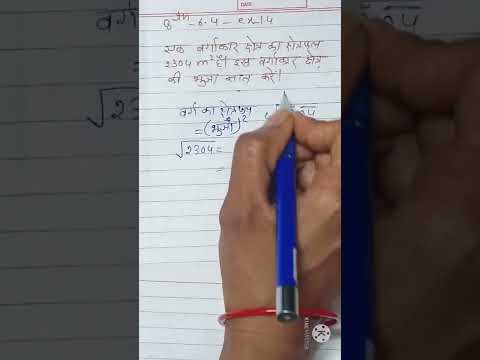 DATE
8th - 6.4 - ex-14
एक वर्गाकार क्षेत्र का क्षेत्रफल
2304 m² है। इस वर्गाकार क्षेत्र
की भुजा ज्ञात करें।
वर्ग का क्षेत्रफल
= (भुजा)²
√2304 =
=